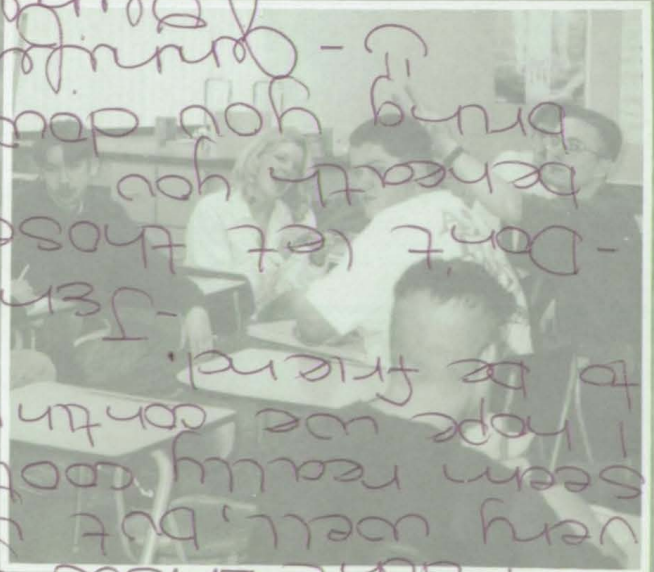 very well, but
seem really cool
I hope we contin
to be friend.
-JEN
-Don't let those
beneath you
bring you dow